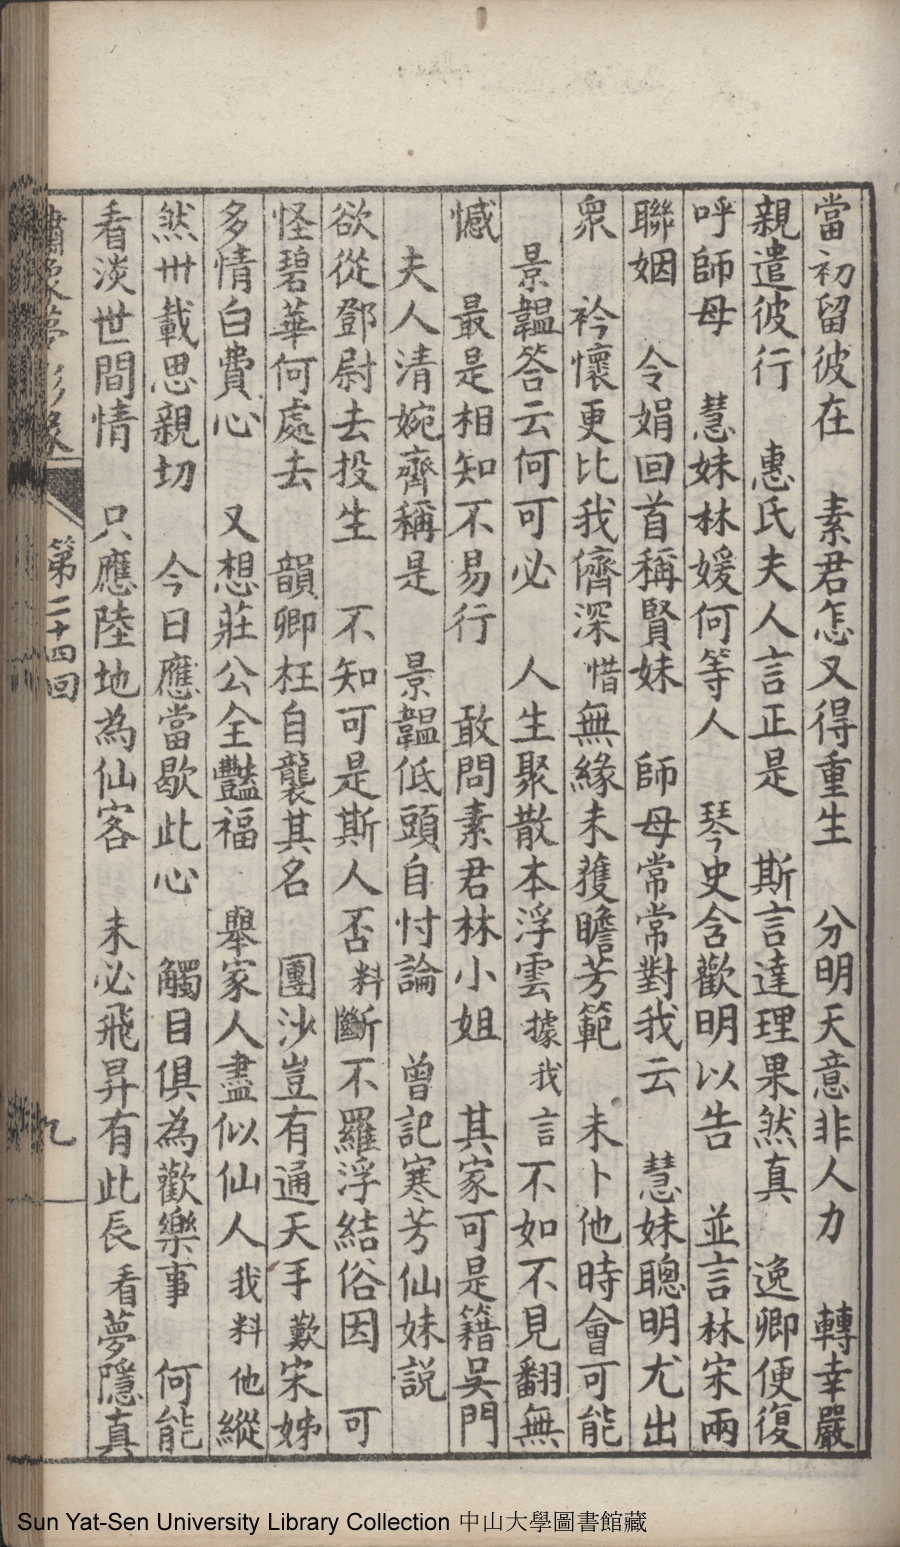 當初留彼在　素君怎又得重生　分明天意非人力　轉幸嚴
親遣彼行　惠氏夫人言正是　斯言達理果然真　逸卿便復
呼師母　慧妹林媛何等人　琴史含歡明以告　並言林宋兩
聯姻　令娟回首稱賢妹　師母常常對我云　慧妹聰明尤出
衆　衿懷更比我儕深　惜無緣未獲瞻芳範　未卜他時會可能
景韞答云何可必　人生聚散本浮雲　據我言不如不見翻無
憾　最是相知不易行　敢問素君林小姐　其家可是籍吳門
夫人清婉齊稱是　景韞低頭自忖論　曾記寒芳仙妹説
欲從鄧尉去投生　不知可是斯人否　料斷不羅浮結俗因　可
怪碧華何處去　韻卿枉自襲其名　團沙豈有通天手　歎宋姊
多情白費心　又想莊公全豔福　舉家人盡似仙人　我料他縱
然卅載思親切　今日應當歇此心　觸目俱為歡樂事　何能
看淡世間情　只應陸地為仙客　未必飛昇有此辰　看夢隱真
夢影緣　第二十四回　九
Sun Yat-Sen University Library Collection 中山大學圖書館藏